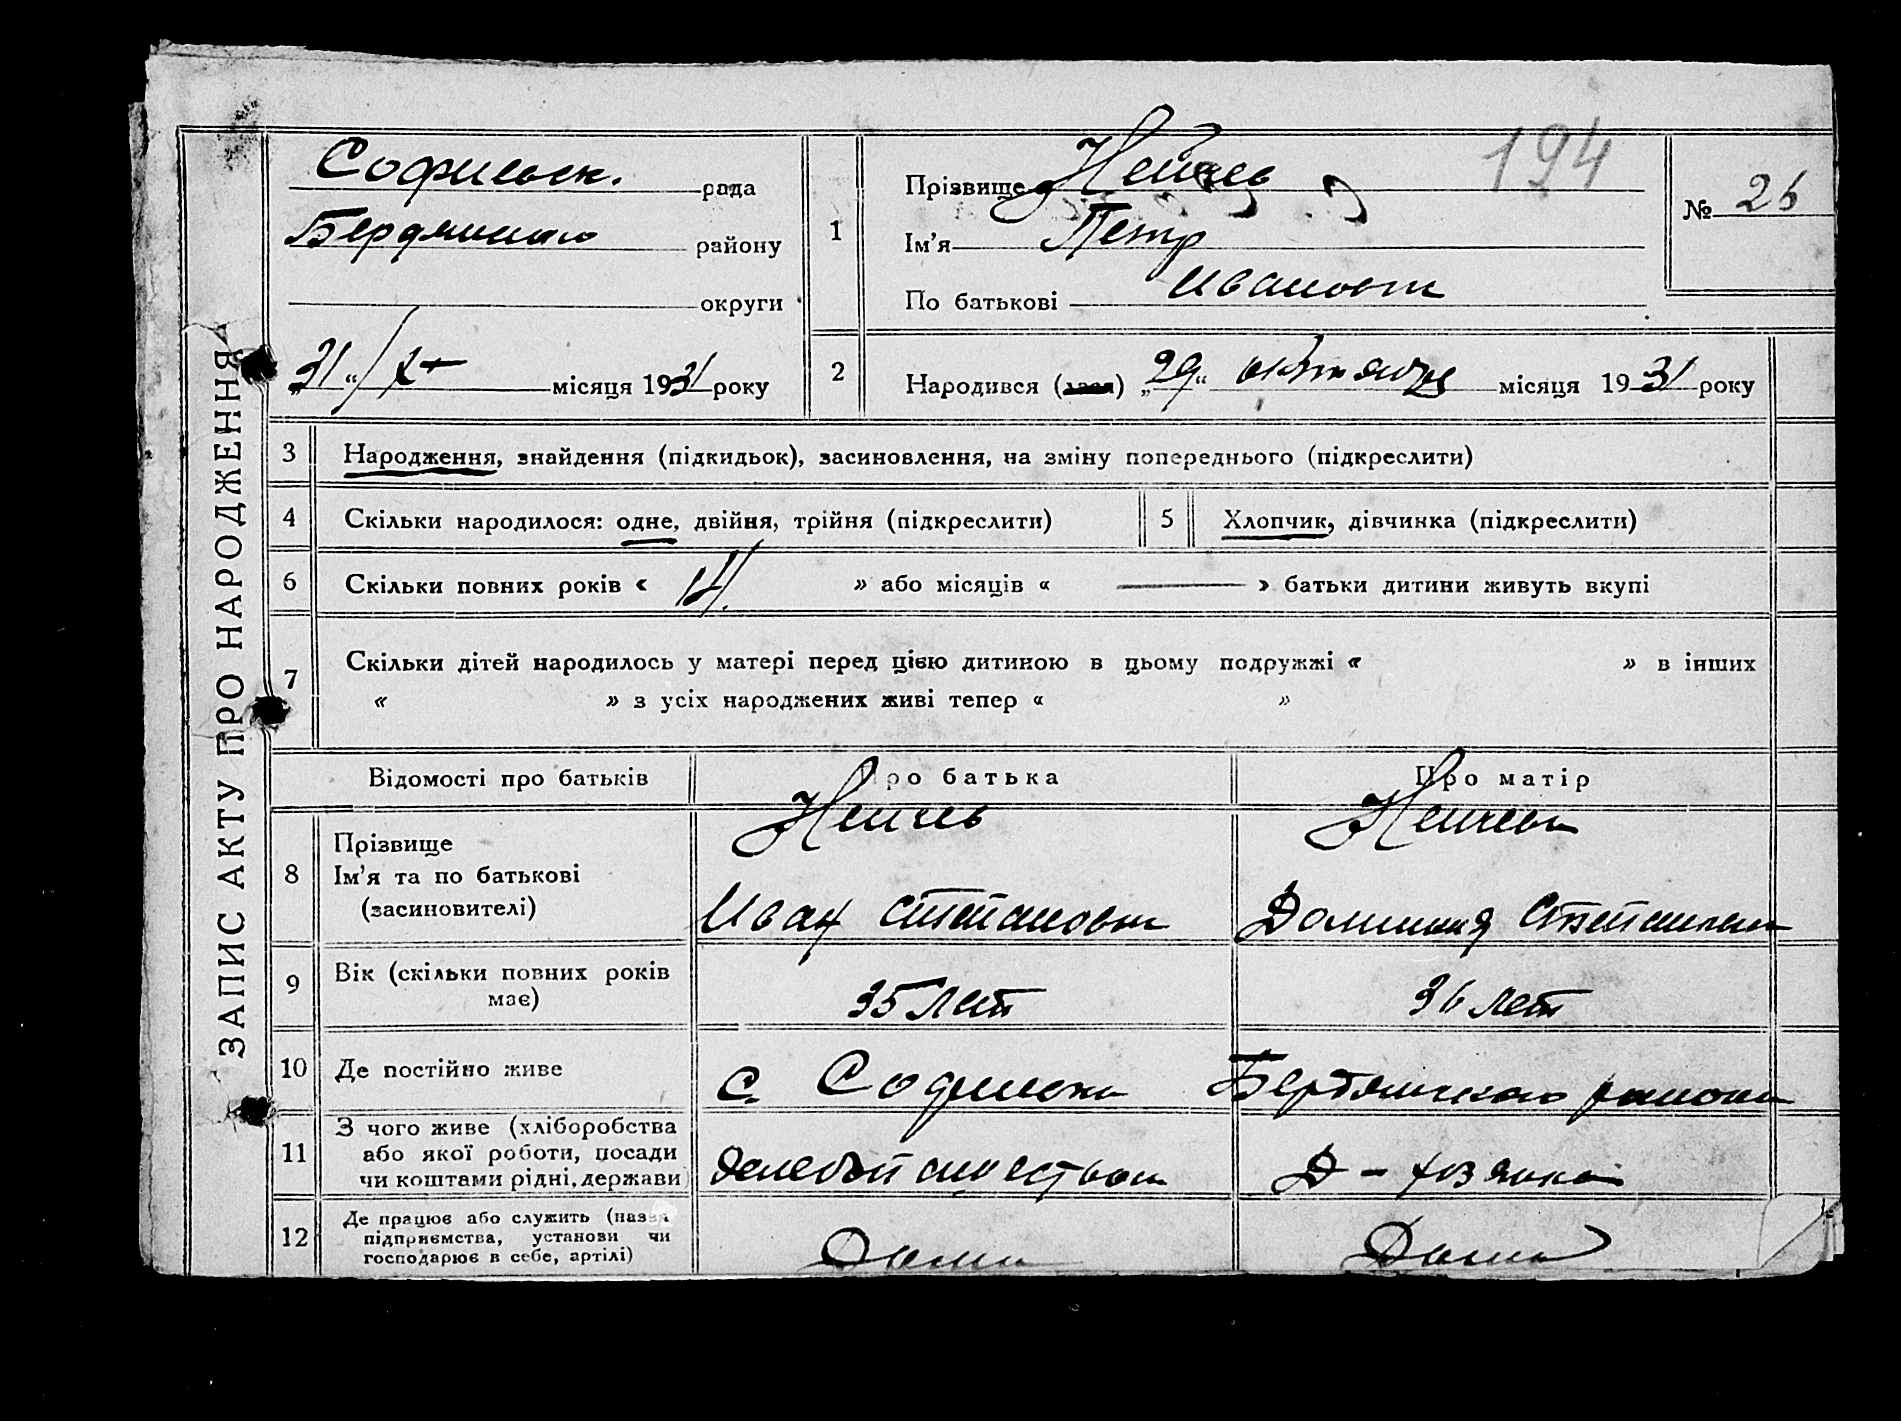 ЗАПИС АКТУ ПРО НАРОДЖЕННЯ
Софиевск. рада
Бердянского району
округи
„31“ / X месяця 1931 року
1
Прізвище Нейчев
Ім'я Петр
По батькові Иванович
194
№ 26
2
Народився (лася) „29“ октября місяця 1931 року
3 Народження, знайдення (підкидьок), засиновлення, на зміну попереднього (підкреслити)
4 Скільки народилося: одне, двійня, трійня (підкреслити)
5 Хлопчик, дівчинка (підкреслити)
6 Скільки повних років « 14 » або місяців « — » батьки дитини живуть вкупі
7 Скільки дітей народилось у матері перед цією дитиною в цьому подружжі « » в інших
« » з усіх народжених живі тепер « »
Відомості про батьків Про батька Про матір
8 Прізвище
Ім'я та по батькові
(засиновителі)
Нейчев
Иван Степанович
Нейчева
Степановна
9 Вік (скільки повних років
має)
35 лет 36 лет
10 Де постійно живе с. Бердянского района
11 З чого живе (хліборобства
або якої роботи, посади
чи коштами рідні, держави)
Д-хозяйка
12 Де працює або служить (назва
підприємства, установи чи
господарює в себе, артілі)
Дома Дома